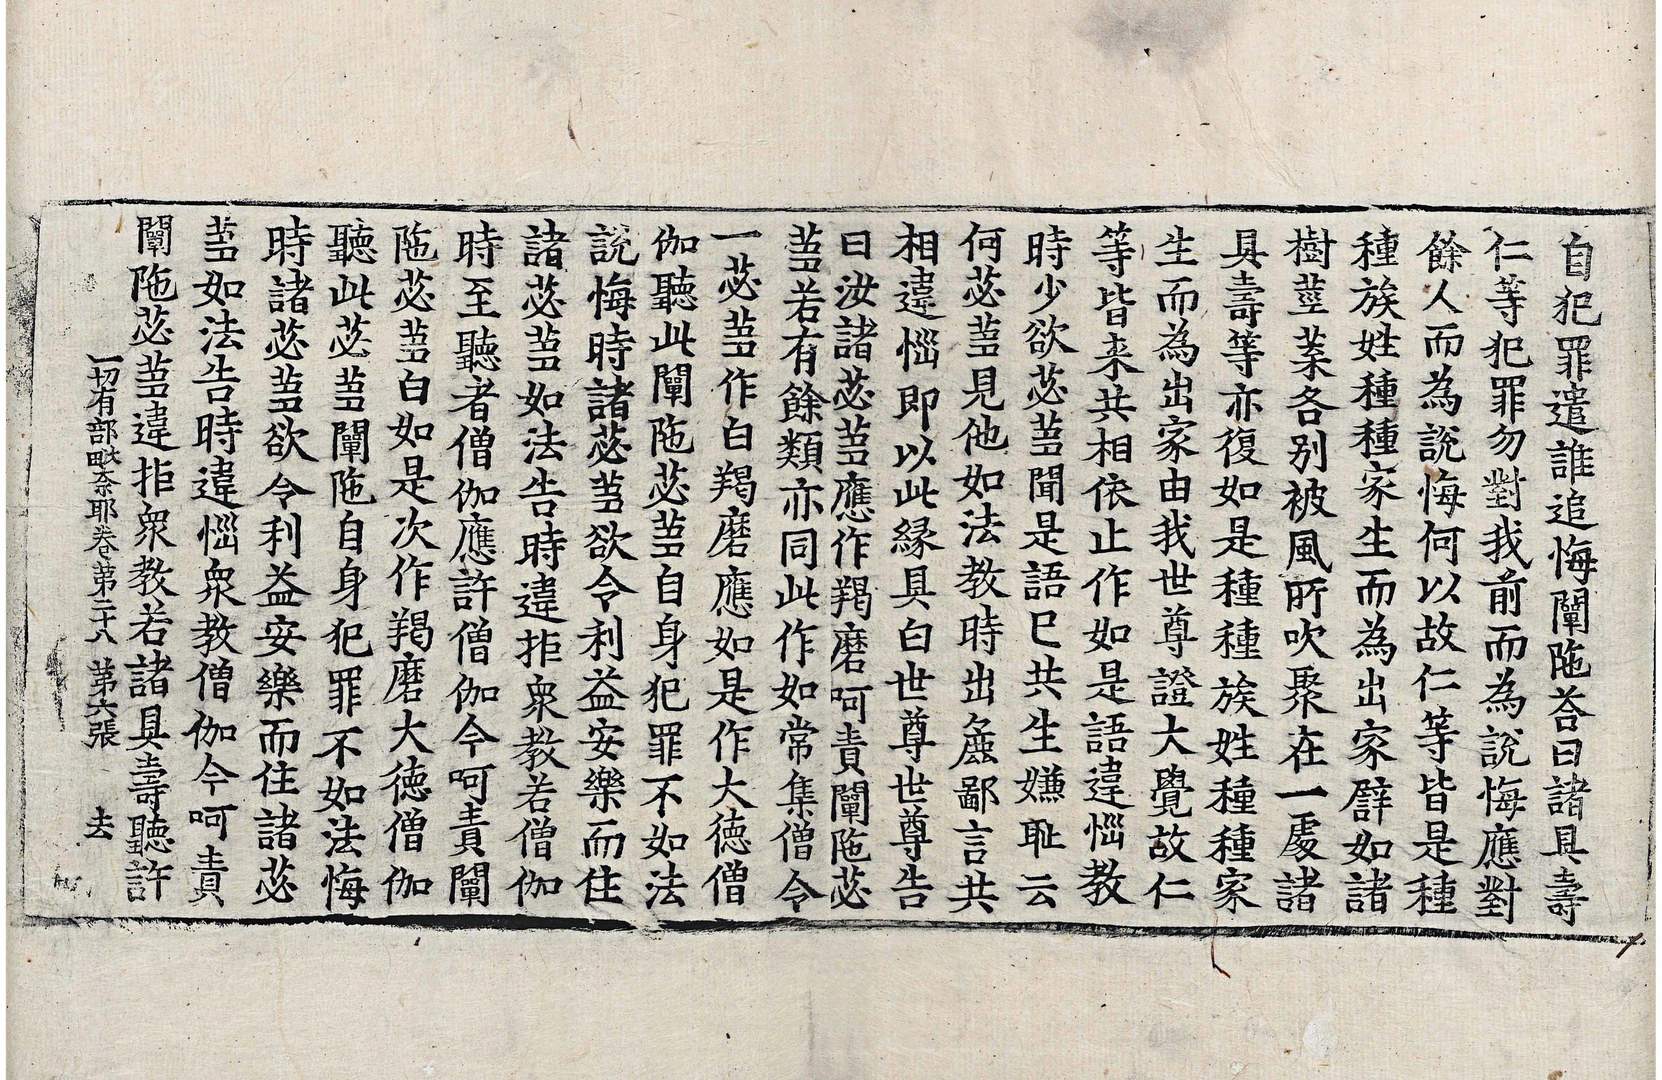 自犯罪遣誰追悔闡陁荅曰諸具壽
仁等犯罪勿對我前而為說悔應對
餘人而為說悔何以故仁等皆是種
種族姓種種家生而為出家譬如諸
樹莖葉各別被風所吹聚在一處諸
具壽等亦復如是種種族姓種種家
生而為出家由我世尊證大覺故仁
等皆来共相依止作如是語違惱教
時少欲苾蒭聞是語已共生嫌恥云
何苾蒭見他如法教時出麁鄙言共
相違惱即以此縁具白世尊世尊告
曰汝諸苾蒭應作羯磨呵責闡陁苾
蒭若有餘類亦同此作如常集僧令
一苾蒭作白羯磨應如是作大德僧
伽聽此闡陁苾蒭自身犯罪不如法
說悔時諸苾蒭欲令利益安樂而住
諸苾蒭如法告時違拒衆教若僧伽
時至聽者僧伽應許僧伽今呵責闡
陁苾蒭白如是次作羯磨大德僧伽
聽此苾蒭闡陁自身犯罪不如法悔
時諸苾蒭欲令利益安樂而住諸苾
蒭如法告時違惱衆教僧伽今呵責
闡陁苾蒭違拒衆教若諸具壽聽許
一切有部毗奈耶卷第三十八 第六張 去